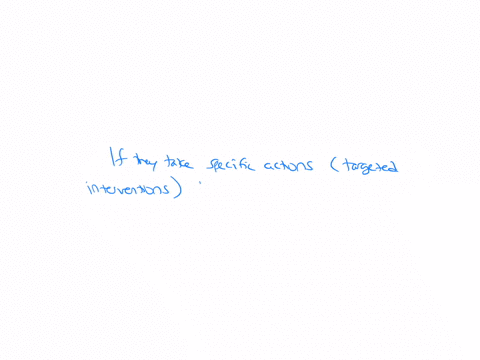 If they take specific actions (targeted
interventions) .